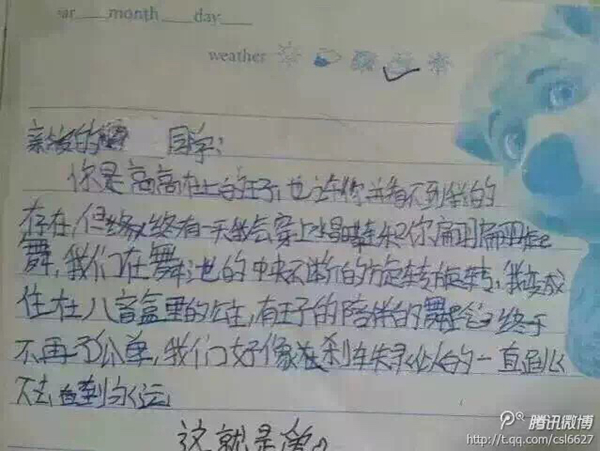 ar month day
weather
亲爱的 同学:
你是高高在上的王子,也许你并看不到我的
存在,但我终有一天我会穿上水晶鞋和你翩翩起
舞,我们在舞池的中央不停的旋转旋转,我变成
住在八音盒里的公主,有王子的陪伴的舞步终于
不再孤单,我们好像刹车失灵似的一直跳
下去 到永远
这就是爱。
腾讯微博
http://t.qq.com/csl6627